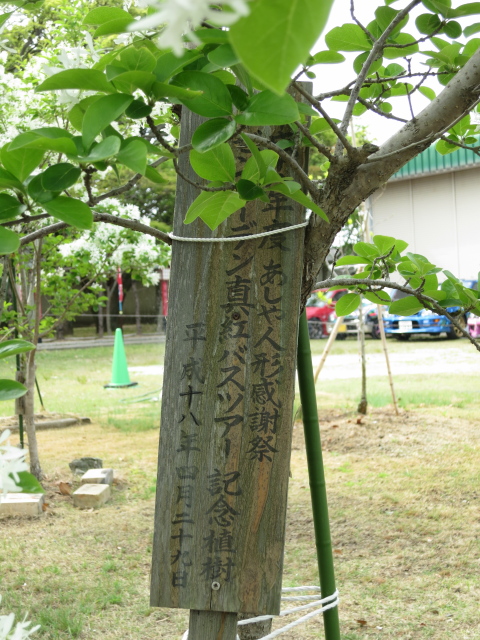 年度 あしや人形感謝祭
デン真紅バスツアー 記念植樹
平成十八年四月二十九日